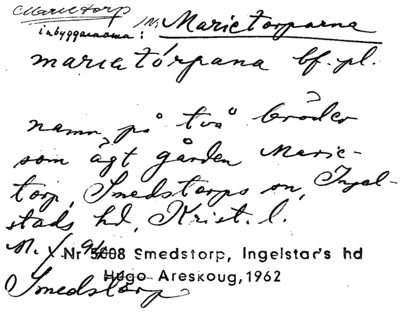 Marietorp
inbyggarnamn: /N. Marietorparna
marietórpana bf. pl.
namn på två bröder
som ägt gården Marie-
torp, Smedstorps sn, Ingel-
stads hd, Krist. l.
Nr 5008 Smedstorp, Ingelstar's hd
Hugo Areskoug, 1962
Smedstorp